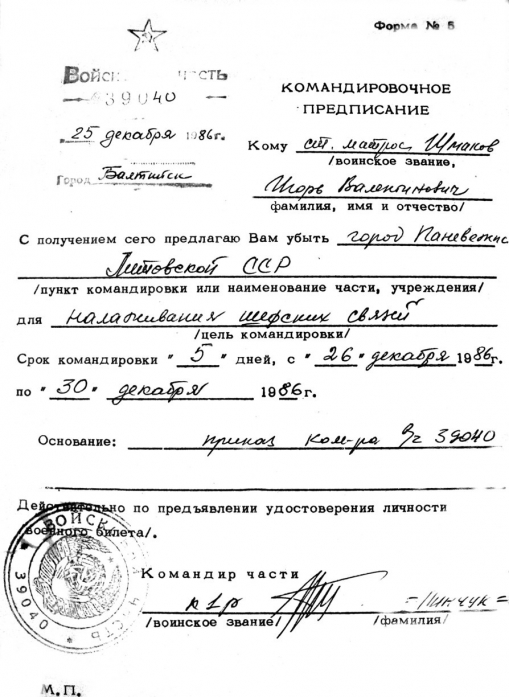 Форма № 5
Войсковая часть
39040
КОМАНДИРОВОЧНОЕ
ПРЕДПИСАНИЕ
"25" декабря 1986г.
Кому ст. матрос Шмаков
/воинское звание,
Город Балтийск
Игорь Валентинович
фамилия, имя и отчество/
С получением сего предлагаю Вам убыть город Паневежис
Литовской ССР
/пункт командировки или наименование части, учреждения/
для налаживания шефских связей
/цель командировки/
Срок командировки "5" дней, с "26" декабря 1986г.
по "30" декабря 1986г.
Основание: приказ ком-ра в/ч 39040
Действительно по предъявлении удостоверения личности
/военного билета/.
ВОЙСКОВАЯ ЧАСТЬ
39040
Командир части
к 1 р
=Пинчук=
/воинское звание/ /фамилия/
М.П.